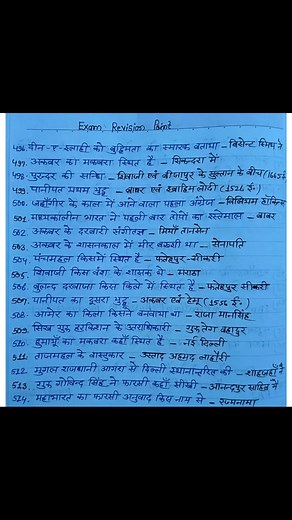 Exam Revision Point
496. दीन-ए-इलाही को बुद्धिमता का स्मारक बताया - विसेन्ट स्मिथ ने
497. अकबर का मकबरा स्थित है - सिकन्दरा में
498. पुरन्दर की सन्धि - शिवाजी एवं बीजापुर के सुल्तान के बीच (1665 ई.
499. पानीपत प्रथम युद्ध - बाबर एवं इब्राहिम लोदी (1526 ई.)
500. जहाँगीर के काल में आने वाला पहला अंग्रेज - विलियम हॉकिन्स
501. मध्यकालीन भारत में पहली बार तोपों का इस्तेमाल - बाबर
502. अकबर के दरबारी संगीतज्ञ - मियाँ तानसेन
503. अकबर के शासनकाल में मीर बक्शी था - सेनापति
504. पंचमहल किसमें स्थित है - फतेहपुर-सीकरी
505. शिवाजी किस वंश के शासक थे - मराठा
506. बुलन्द दरवाजा किस किले में स्थित है - फतेहपुर सीकरी
507. पानीपत का दूसरा युद्ध - अकबर एवं हेमू (1556 ई.)
508. आमेर का किला किसने बनवाया था - राजा मानसिंह
509. सिख गुरु हरकिशन के उत्तराधिकारी - गुरु तेग बहादुर
510. हुमायूँ का मकबरा कहाँ स्थित है - नई दिल्ली
511. ताजमहल के वास्तुकार - उस्ताद अहमद लाहौरी
512. मुगल राजधानी आगरा से दिल्ली स्थानान्तरित की - शाहजहाँ ने
513. गुरु गोविन्द सिंह ने फारसी कहाँ सीखी - आनन्दपुर साहिब में
514. महाभारत का फारसी अनुवाद किस नाम से - रज्मनामा